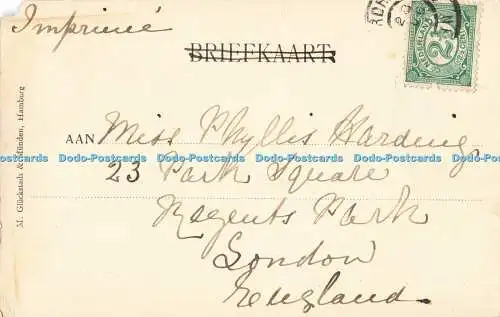 Imprimé
BRIEFKAART
NEDERLAND
2½
CENT
AAN Miss Phyllis Harding
23 Park Square
Regents Park
London
England.
M. Glückstadt & Münden, Hamburg
Dodo-Postcards Dodo-Postcards Dodo-Postcards Dodo-Postcards Dodo-Postcards Dodo-Postcards